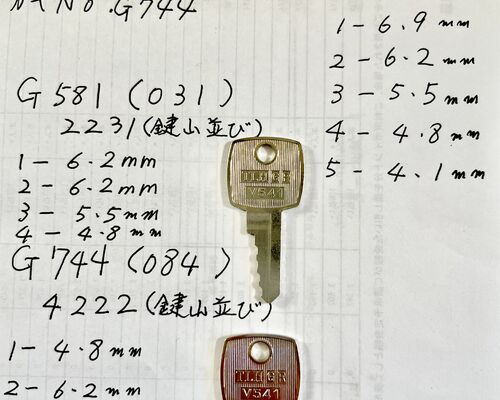 No.G744
G581(031)
2231(鍵山並び)
1-6.2mm
2-6.2mm
3-5.5mm
4-4.8mm
G744(084)
4222(鍵山並び)
1-4.8mm
2-6.2mm
1-6.9mm
2-6.2mm
3-5.5mm
4-4.8mm
5-4.1mm
V541
V541